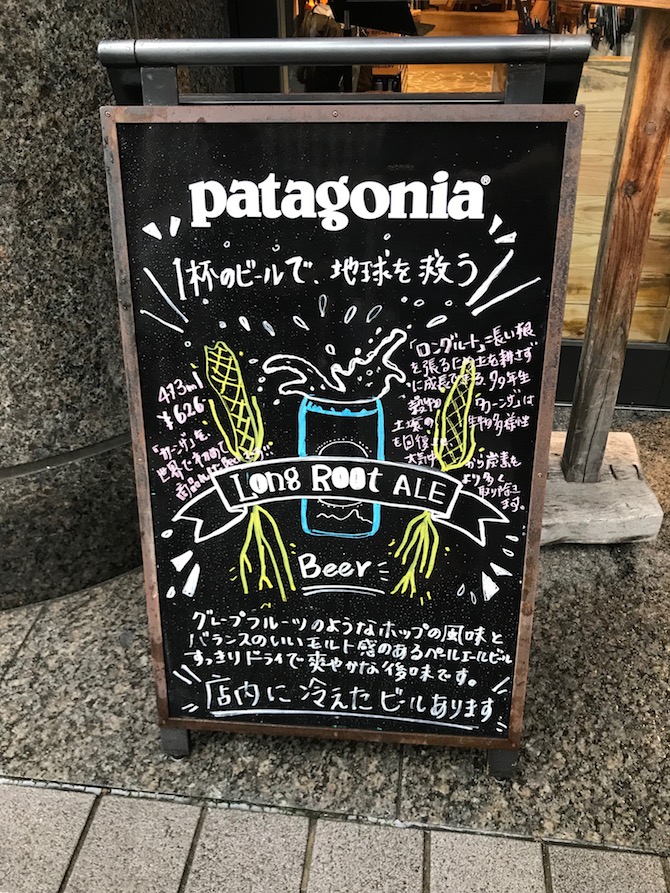 patagonia®
1杯のビールで、地球を救う
473ml
¥626-
「カーンザ」を、
世界で初めて
「ロングルート」=長い根
を張るため土を耕さず
に成長できる、多年生
穀物「カーンザ」は
土壌の生物多様性
を回復させ
大気中から炭素を
より多く
取り除き
ます。
Long Root ALE
Beer
グレープフルーツのようなホップの風味と
バランスのいいモルト感のあるペールエールビール
すっきりドライで爽やかな後味です。
店内に冷えたビールあります